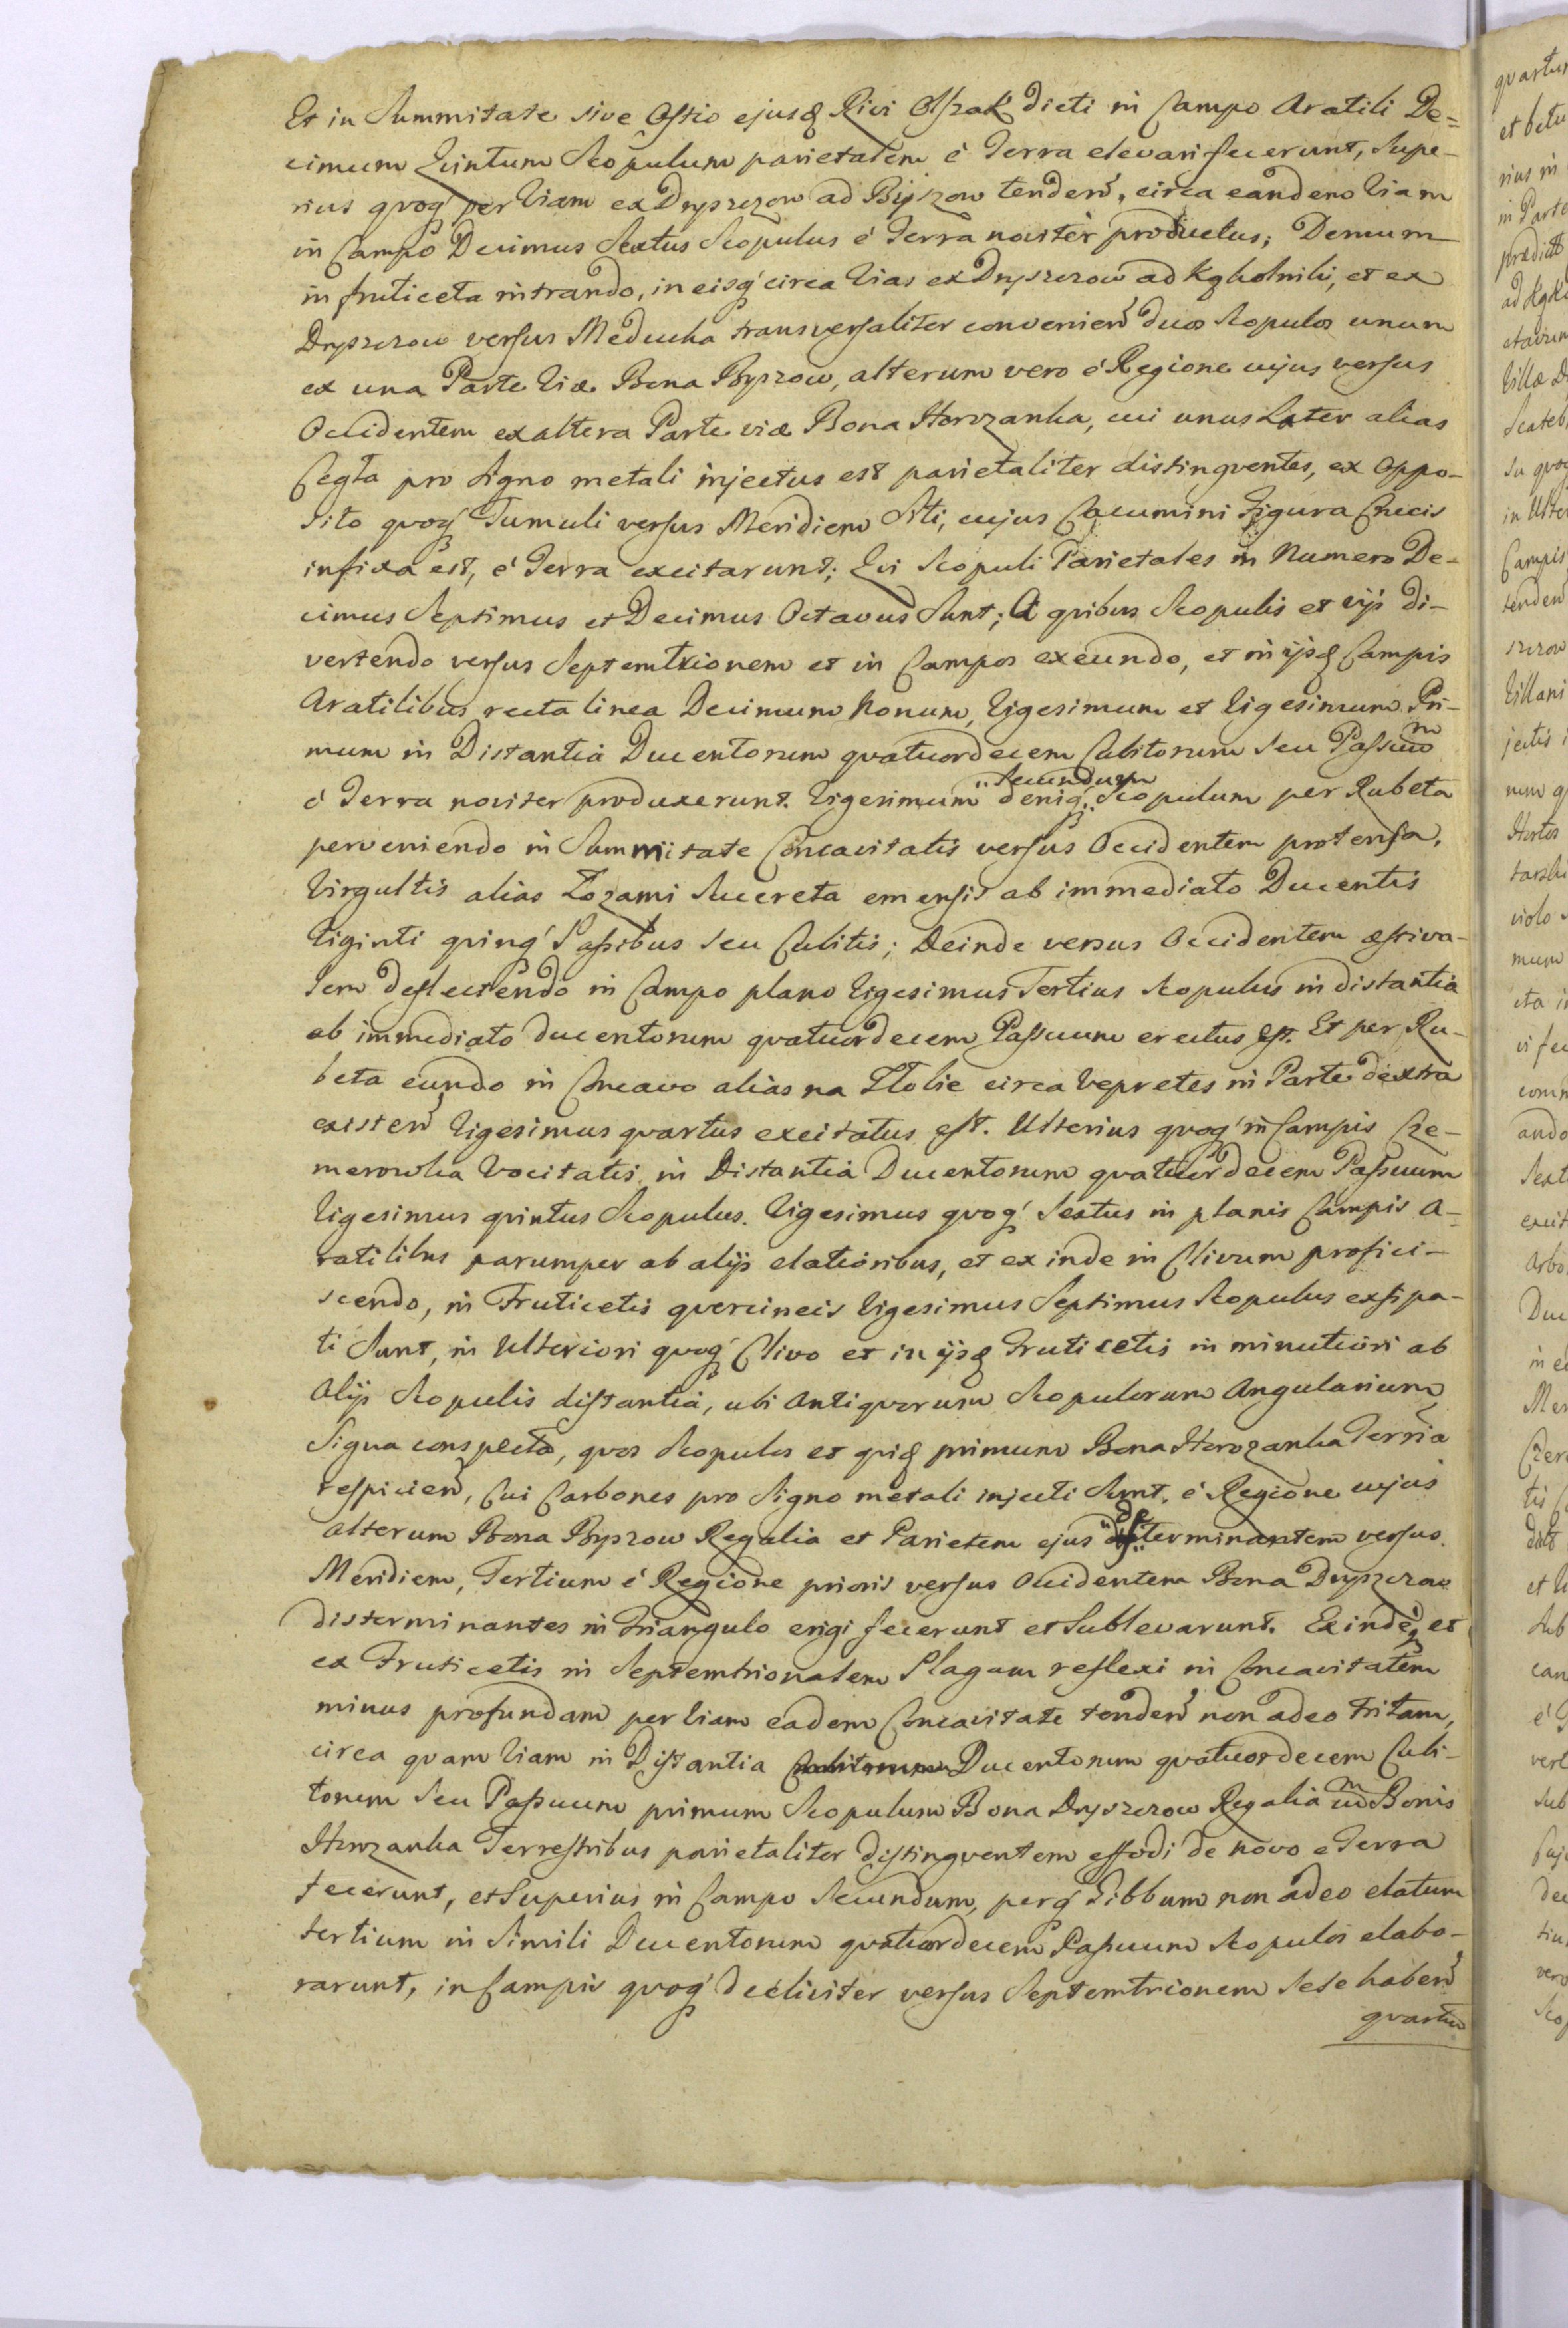 Et in Summitate sive Ostio ejusq Rivi Olszak dicti in Campo Aratili De=
cimum Qvintum Scopulum parietalem é Terra elevari fecerunt, Supe-
rius qvoq́ per Viam ex Dryszczow ad Byszow tendeñ, circa eandem Viam
in Campo Decimus Sextus Scopulus é Terra noviter productus; Demum
in fruticeta intrando, in eisq́ circa Vias ex Dryszczow ad et ex
Dryszczow versus Meducha transversaliter convenieñ duos Scopulos unum
ex una Parte Viæ Bona Byszow, alterum vero é Regione cujus versus
Occidentem ex altera Parte viæ Bona Horozanka, cui unus Later alias
Cegła pro Signo metali injectus est parietaliter distingventes, ex Oppo-
sito qvoq́ Tumuli versus Meridiem Siti, cujus Cacumini Figura Crucis
infixa est, é Terra excitarunt; Qvi Scopuli Parietales in Numero De-
cimus Septimus et Decimus Octavus Sunt; A qvibus Scopulis et vijs di-
vertendo versus Septemtrionem et in Campos exeundo, et in ijsq Campis
Aratilibus recta linea Decimum Nonum, Vigesimum et Vigesimum Pri-
mum in Distantia Ducentorum qvatuordecem Cubitorum seu Passuum
é Terra noviter produxerunt. Vigesimum Secundum deniq́ Scopulum per Rubeta
perveniendo in Summitate Concavitatis versus Occidentem protensa,
Virgultis alias Łozami Succreta emensis ab immediato Ducentis
Viginti qvinq́ Passibus seu Cubitis; Deinde versus Occidentem æstiva-
lem deflectendo in Campo plano Vigesimus Tertius Scopulus in distantia
ab immediato ducentorum qvatuordecem Passuum erectus est. Et per Ru-
beta eundo in Concavo alias na Żłobie circa Vepretes in Parte dextra
existeñ Vigesimus qvartus excitatus est. Ulterius qvoq́ in Campis Cze-
merowka Vocitatis in Distantia Ducentorum qvatuordecem Passuum
Vigesimus qvintus Scopulus. Vigesimus qvoq́ Sextus in planis Campis A-
ratilibus parumper ab alijs elatioribus, et exinde in Clivum profici-
scendo, in Fruticetis qverцineis Vigesimus Septimus Scopulus exsipa-
ti Sunt, in Ulteriori qvoq́ Clivo et in ijsq Fruticetis in minutiori ab
Alijs Scopulis distantia, ubi Antiqvorum Scopulorum Angularium
Signa conspecta, qvos Scopulos et primum Bona Horozanka Terrña
respicieñ, Cui Carbones pro Signo metali injecti Sunt, é Regione cujus
alterum Bona Byszow Regalia et Parietem ejus disterminantem versus
Meridiem, Tertium é Regione prioris versus Occidentem Bona Dryszczow
disterminantes in Triangulo erigi fecerunt et Sublevarunt. Exindeq́ et
ex Fruticetis in Septemtrionalem Plagam reflexi in Concavitatem
minus profundam per Viam eadem Concavitate tendeñ non adeo tritam,
circa qvam Viam in Distantia Ducentorum qvatuordecem Cubi-
torum Seu Passuum primum Scopulum Bona Dryszczow Regalia Bonis
Horozanka Terrestribus parietaliter distingventem effodi de novo e Terra
fecerunt, et Superius in Campo Secundum, perq́ Gibbum non adeo elatum
tertium in Simili Ducentorum qvatuordecem Passuum Scopulos elabo-
rarunt, in Campis qvoq́ decliviter versus Septemtrionem sese habeñ
qvartum